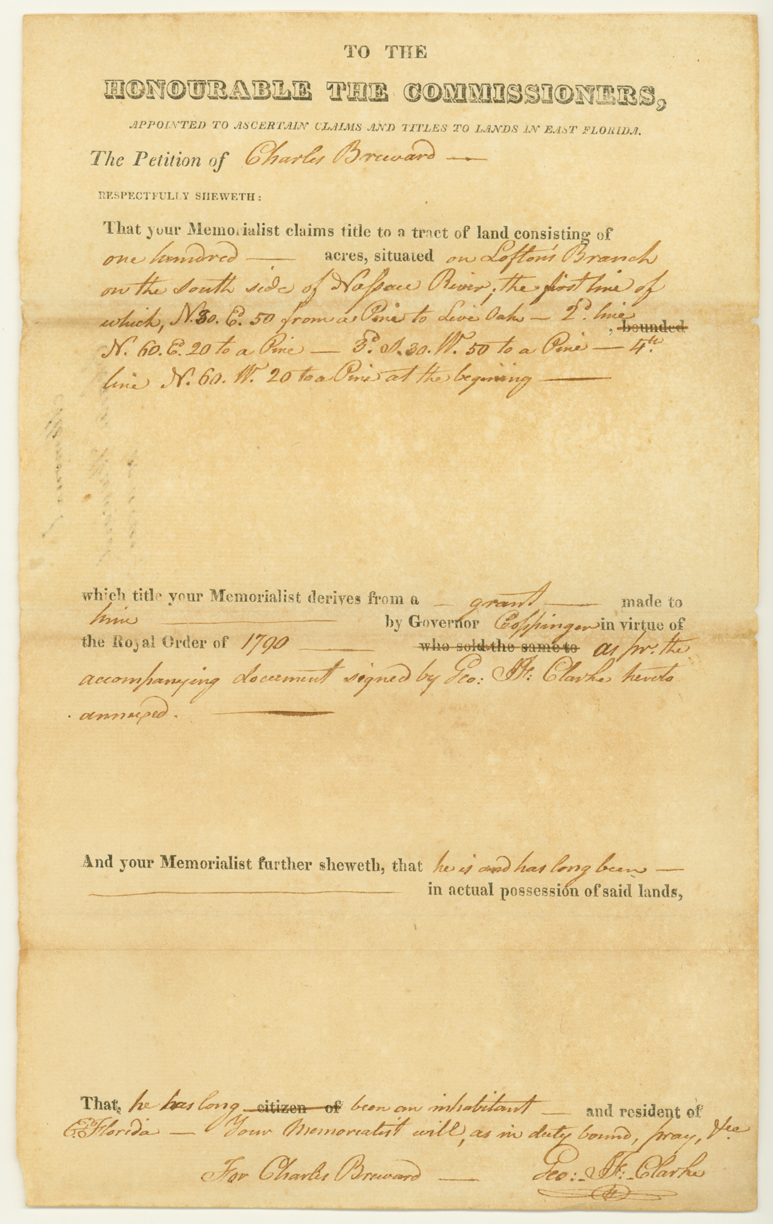 TO THE
HONOURABLE THE COMMISSIONERS,
APPOINTED TO ASCERTAIN CLAIMS AND TITLES TO LANDS IN EAST FLORIDA.
The Petition of Charles Breward —
RESPECTFULLY SHEWETH:
That your Memorialist claims title to a tract of land consisting of
one hundred — acres, situated on Lofton's Branch
on the south side of Nassau River, the first line of
which, N. 30. E. 50 from a Pine to Live Oak — 2d. line
, bounded
N. 60. E. 20 to a Pine — 3d. S. 30. W. 50 to a Pine — 4th.
line N. 60. W. 20 to a Pine at the begining —
which title your Memorialist derives from a — grant — made to
him — by Governor Coppinger in virtue of
the Royal Order of 1790 — who sold the same to as pr. the
accompanying document signed by Geo: J. F: Clarke hereto
annexed. —
And your Memorialist further sheweth, that he is and has long been —
— in actual possession of said lands,
That, he has long citizen of been an inhabitant — and resident of
Et. Florida — Your Memorialist will, as in duty bound, pray, &ca
For Charles Breward — Geo: J. F: Clarke